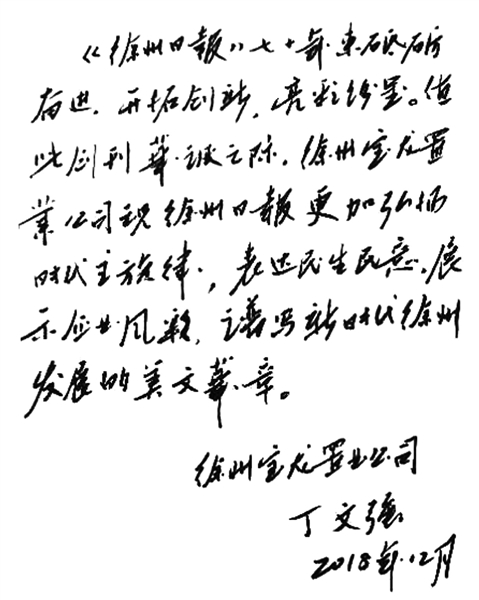 《徐州日报》七十年来砥砺
奋进、开拓创新，亮彩纷呈。值
此创刊华诞之际，徐州宝龙置
业公司祝徐州日报更加弘扬
时代主旋律，表达民生民意、展
示企业风貌，谱写新时代徐州
发展的美文华章。
徐州宝龙置业公司
丁文强
2018年12月